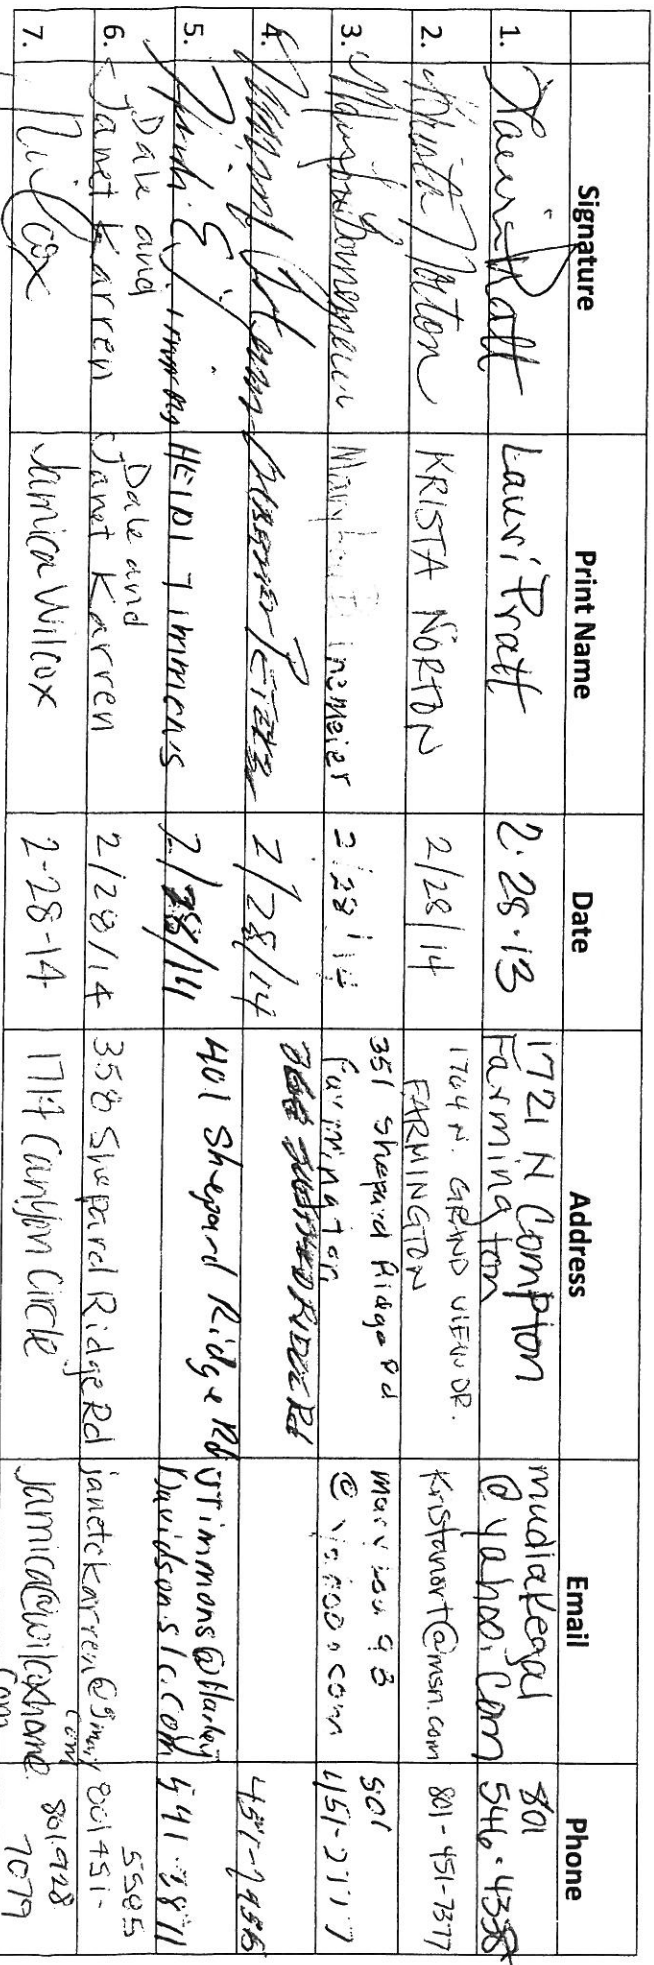 Signature Print Name Date Address Email Phone
1. Lauri Pratt Lauri Pratt 2.28.13 1721 N Compton Farmington mudlakegal @yahoo.com 801 546-4338
2. Krista Norton KRISTA NORTON 2/28/14 1764 N. GRAND VIEW DR. FARMINGTON Kristanort@msn.com 801-451-7377
3. 2/28/14 351 Shepard Ridge Rd Farmington 801 451-2777
4. 2/28/14 Rd 451-7936
5. HEIDI TIMMONS 2/28/14 401 Shepard Ridge Rd vtimmons@Harley Davidsonslc.com 541-3811
6. Dale and Janet Karren Dale and Janet Karren 2/28/14 358 Shepard Ridge Rd janetckarren@gmail com 801 451- 5505
7. Wilcox Jamica Wilcox 2-28-14 1717 Canyon Circle jamica@wilcoxhome. com 801 928 7079